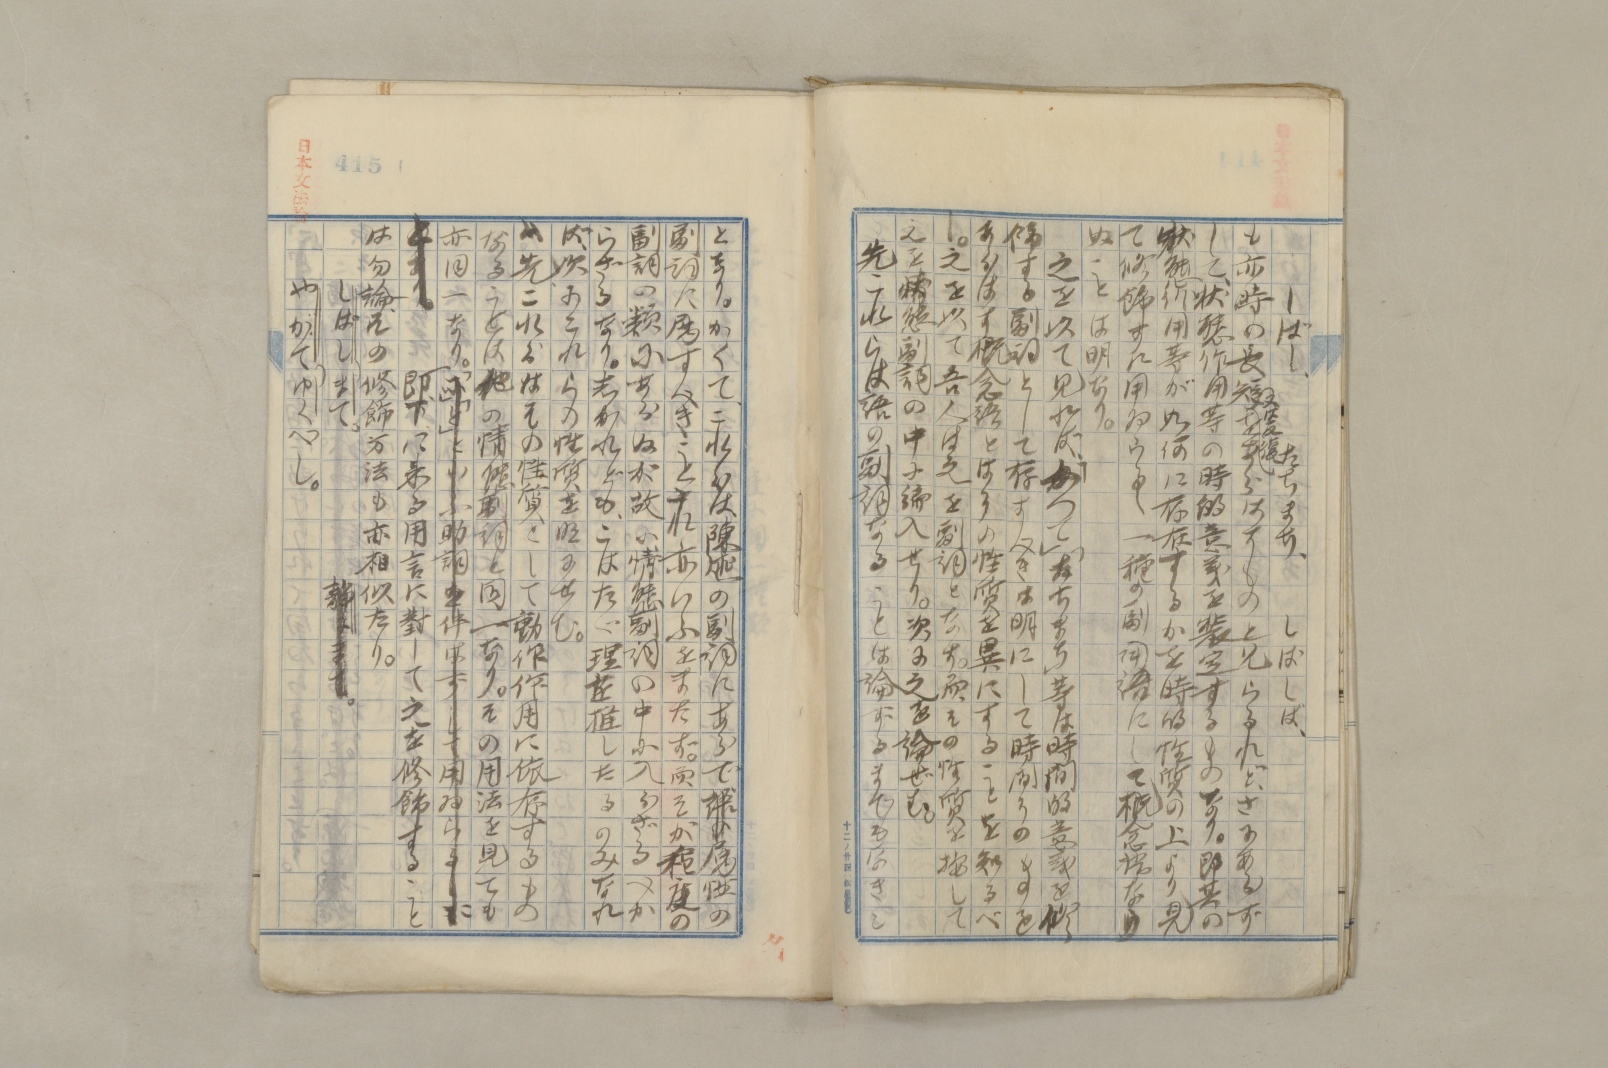 しばし、　たちまち、　しばしば、
も亦時の長短遅速をあらはすものと見らるれど、さにあらず
して、状態作用等の時的意義を装定するものなり。即其の
状態作用等が如何に存在するかを時的性質の上より見
て修飾すに用ゐらるゝ一種の副詞語にして概念語なら
ぬことは明なり。
之を以て見れば、「かつて」「たちまち」等は時間的意義を修
飾する副詞として存すべきは明にして時間りのものを
あらはす概念語とはその性質を異にすることを知るべ
し。之を以て吾人は之を副詞となす。而その性質を按じて
之を情態副詞の中に編入せり。次に之を論ぜむ。
先これらは語の副詞なることは論ずるまでもなきこ
415
日本文法
となり。かくて、これらは陳述の副詞にあらで
副詞に属すべきことこれ亦いふをまたず。而そが程度の
副詞の類にあらぬが故に情態副詞の中に入らざるべか
らざるなり。しかれども、こはたゞ理を推したるのみなれ
ば、次にこれらの性質を明にせむ。
先これらはその性質として動作作用に依存するもの
なることは他の情態副詞と同一なり。その用法を見ても
亦同一なり。
即下に来る用言に對して之を修飾すること
は勿論、その修飾方法も亦相似たり。
しばしまて。
やがてゆくべし。